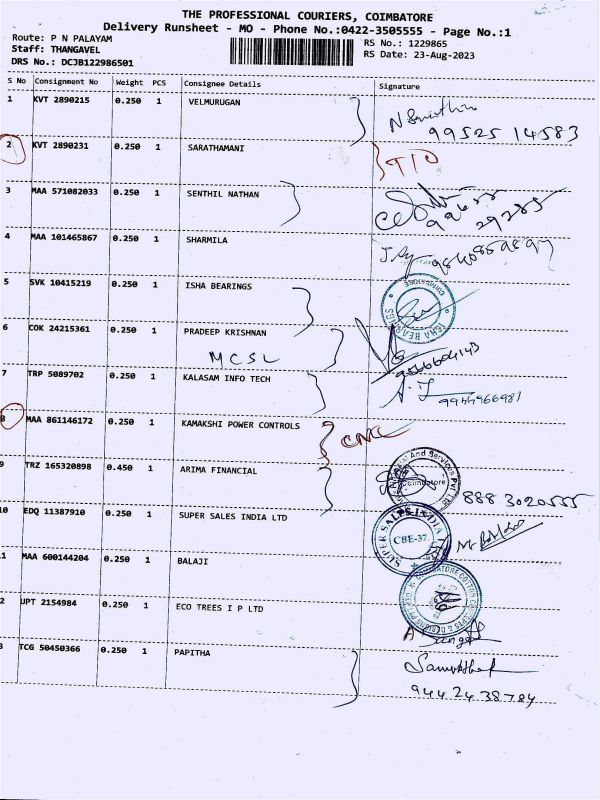 THE PROFESSIONAL COURIERS, COIMBATORE
Delivery Runsheet - MO - Phone No.:0422-3505555 - Page No.:1
Route: P N PALAYAM
RS No.: 1229865
Staff: THANGAVEL
RS Date: 23-Aug-2023
DRS No.: DCJB122986501
S No Consignment No Weight PCS Consignee Details Signature
1 KVT 2890215 0.250 1 VELMURUGAN
99525 14583
2 KVT 2890231 0.250 1 SARATHAMANI
3 MAA 571082033 0.250 1 SENTHIL NATHAN
4 MAA 101465867 0.250 1 SHARMILA
5 SVK 10415219 0.250 1 ISHA BEARINGS
6 COK 24215361 0.250 1 PRADEEP KRISHNAN
MCSL
7 TRP 5089702 0.250 1 KALASAM INFO TECH
9944966981
8 MAA 861146172 0.250 1 KAMAKSHI POWER CONTROLS
9 TRZ 165320898 0.450 1 ARIMA FINANCIAL
Coimbatore
888 3020555
10 EDQ 11387910 0.250 1 SUPER SALES INDIA LTD
SUPER SALES INDIA
CBE-37
11 MAA 600144204 0.250 1 BALAJI
2 UPT 2154984 0.250 1 ECO TREES I P LTD
3 TCG 50450366 0.250 1 PAPITHA
944 24 38784